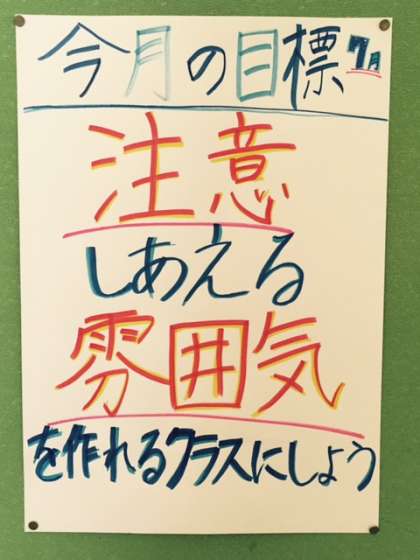 今月の目標 7月
注意
しあえる
雰囲気
を作れるクラスにしよう